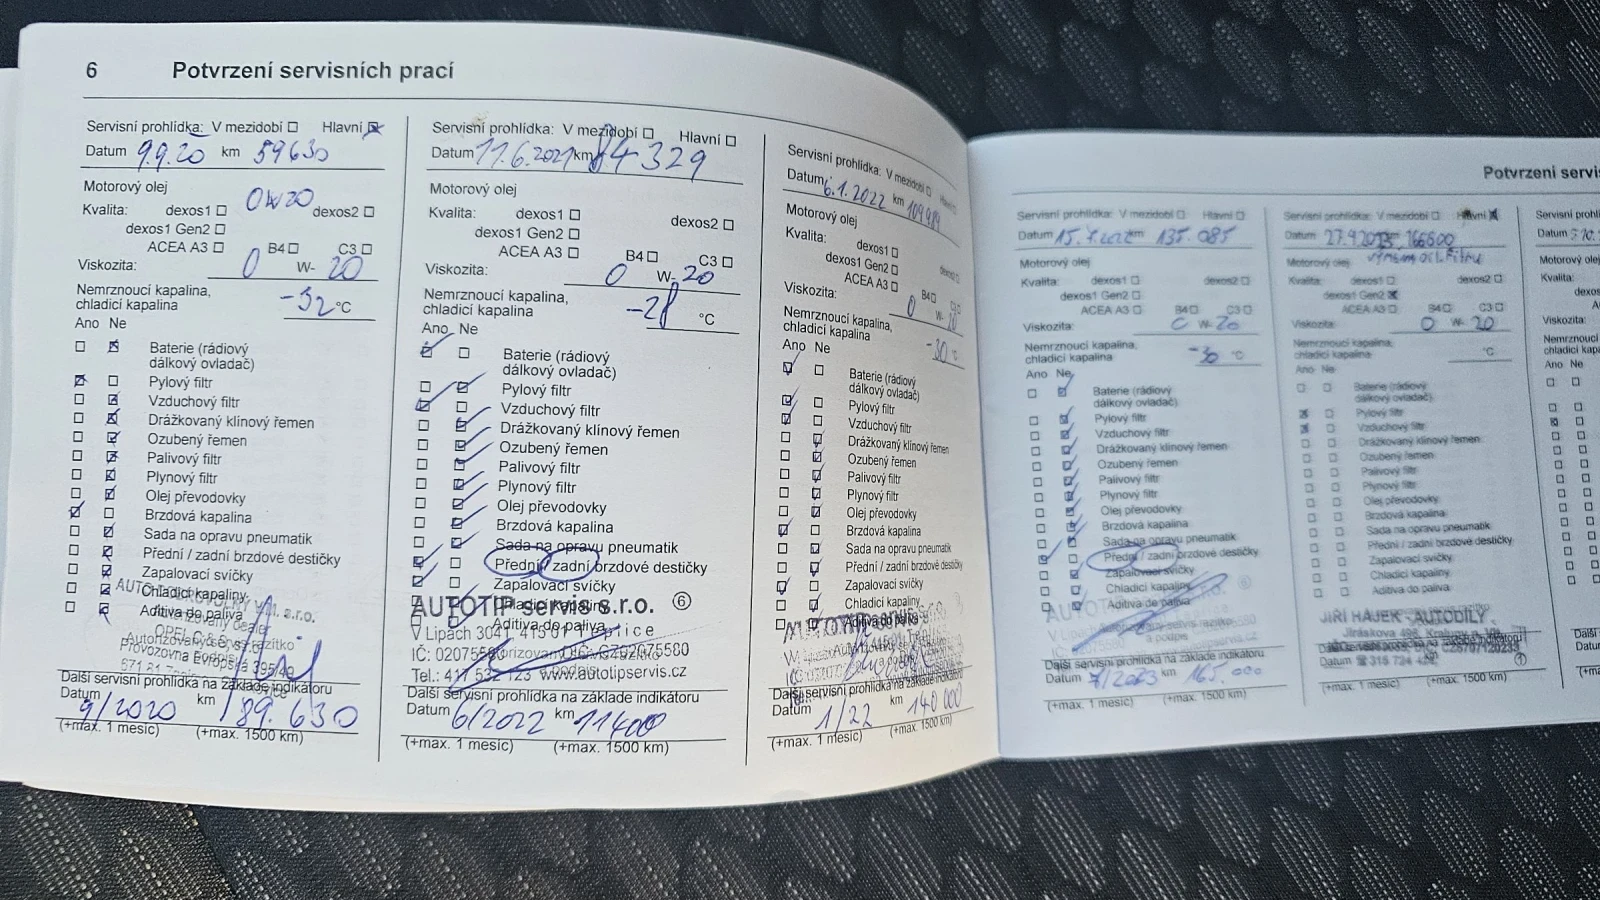 6 Potvrzení servisních prací
Servisní prohlídka: V mezidobí Hlavní
Datum 9.9.20 km 59630
Motorový olej
0W20
Kvalita: dexos1 dexos2
dexos1 Gen2
ACEA A3 B4 C3
Viskozita: 0 W- 20
Nemrznoucí kapalina,
chladicí kapalina -32 °C
Ano Ne
Baterie (rádiový
dálkový ovladač)
Pylový filtr
Vzduchový filtr
Drážkovaný klínový řemen
Ozubený řemen
Palivový filtr
Plynový filtr
Olej převodovky
Brzdová kapalina
Sada na opravu pneumatik
Přední / zadní brzdové destičky
Zapalovací svíčky
Chladicí kapaliny
Aditiva do paliva
Provozovna Evropská
Další servisní prohlídka na základě indikátoru
Datum 9/2020 km 89.630
(+max. 1 měsíc) (+max. 1500 km)
Servisní prohlídka: V mezidobí Hlavní
Datum 11.6.2021 km 84 329
Motorový olej
Kvalita: dexos1 dexos2
dexos1 Gen2
ACEA A3 B4 C3
Viskozita: 0 W- 20
Nemrznoucí kapalina,
chladicí kapalina -28 °C
Ano Ne
Baterie (rádiový
dálkový ovladač)
Pylový filtr
Vzduchový filtr
Drážkovaný klínový řemen
Ozubený řemen
Palivový filtr
Plynový filtr
Olej převodovky
Brzdová kapalina
Sada na opravu pneumatik
Přední / zadní brzdové destičky
Zapalovací svíčky
Chladicí kapaliny
Aditiva do paliva
AUTOTIP servis s.r.o. 6
V Lipách 3041 415 01 Teplice
IČ: 02075580 CZ02075580
www.autotipservis.cz
Další servisní prohlídka na základě indikátoru
Datum 6/2022 km 114000
(+max. 1 měsíc) (+max. 1500 km)
Servisní prohlídka: V mezidobí Hlavní
Datum 6.1.2022 km 109984
Motorový olej
Kvalita: dexos1 dexos2
dexos1 Gen2
ACEA A3 B4 C3
Viskozita: 0 W- 20
Nemrznoucí kapalina,
chladicí kapalina -30 °C
Ano Ne
Baterie (rádiový
dálkový ovladač)
Pylový filtr
Vzduchový filtr
Drážkovaný klínový řemen
Ozubený řemen
Palivový filtr
Plynový filtr
Olej převodovky
Brzdová kapalina
Sada na opravu pneumatik
Přední / zadní brzdové destičky
Zapalovací svíčky
Chladicí kapaliny
Aditiva do paliva
Další servisní prohlídka na základě indikátoru
Datum 1/22 km 140 000
(+max. 1 měsíc) (+max. 1500 km)
Potvrzení servis
Servisní prohlídka: V mezidobí Hlavní
Datum 15.7.2022 km 135.085
Motorový olej
Kvalita: dexos1 dexos2
dexos1 Gen2
ACEA A3 B4 C3
Viskozita: 0 W- 20
Nemrznoucí kapalina,
chladicí kapalina -30 °C
Ano Ne
Baterie (rádiový
dálkový ovladač)
Pylový filtr
Vzduchový filtr
Drážkovaný klínový řemen
Ozubený řemen
Palivový filtr
Plynový filtr
Olej převodovky
Brzdová kapalina
Sada na opravu pneumatik
Přední / zadní brzdové destičky
Zapalovací svíčky
Chladicí kapaliny
Aditiva do paliva
Další servisní prohlídka na základě indikátoru
Datum 7/2023 km 165.000
(+max. 1 měsíc) (+max. 1500 km)
Servisní prohlídka: V mezidobí Hlavní
Datum 27.9.2023 166500
Motorový olej
Kvalita: dexos1 dexos2
dexos1 Gen2
ACEA A3 B4 C3
Viskozita: 0 W- 20
Nemrznoucí kapalina,
chladicí kapalina °C
Ano Ne
Baterie (rádiový
dálkový ovladač)
Pylový filtr
Vzduchový filtr
Drážkovaný klínový řemen
Ozubený řemen
Palivový filtr
Plynový filtr
Olej převodovky
Brzdová kapalina
Sada na opravu pneumatik
Přední / zadní brzdové destičky
Zapalovací svíčky
Chladicí kapaliny
Aditiva do paliva
JIŘÍ HÁJEK - AUTODÍLY
Datum
(+max. 1 měsíc) (+max. 1500 km)
Servisní prohl
Datum
Motorový olej
Kvalita:
dexos
ACE
Viskozita:
Nemrznoucí ka
chladicí kapalin
Ano Ne
Další servis
Datum
(+ma